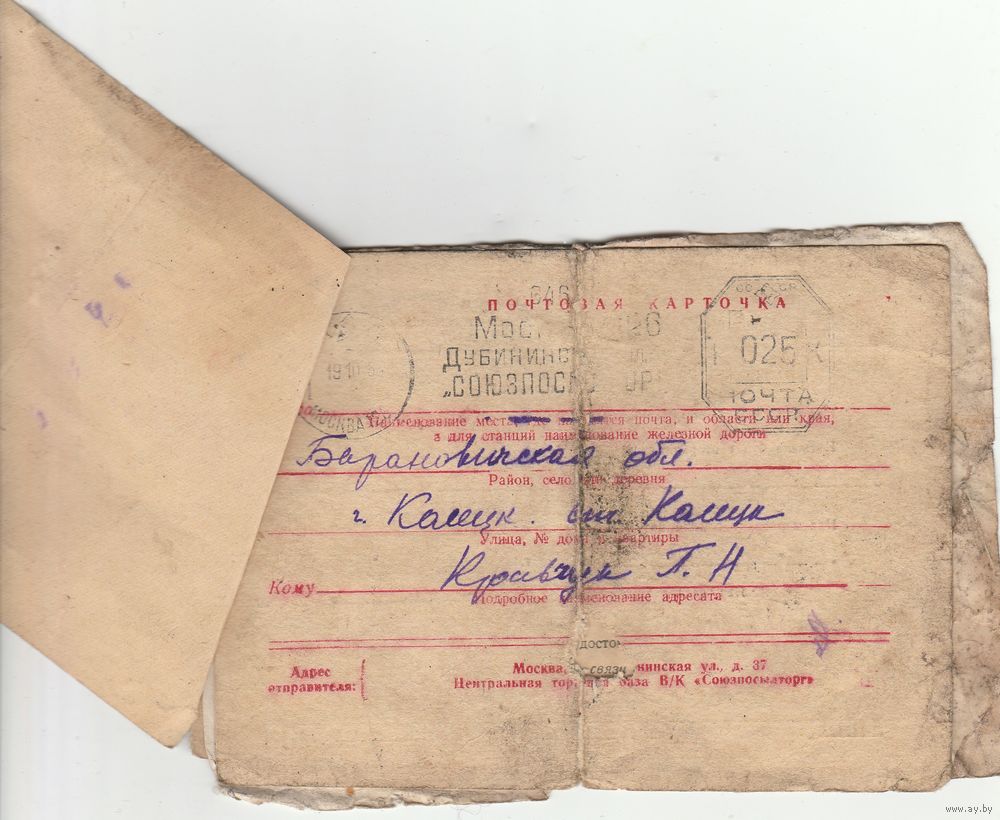 ПОЧТОВАЯ КАРТОЧКА
646
Мос 126
ДУБИНИНС
„СОЮЗПОС
025 К
ПОЧТА
СССР
19 10
МОСКВА
Наименование места, где почта, и области или края,
а для станций наименование железной дороги
Барановичская обл.
Район, село или деревня
г. Клецк. ст. Клецк
Улица, № дома и квартиры
Кому Кравчук П. Н
Подробное наименование адресата
достов
связи
Адрес отправителя:
Москва, нинская ул., д. 37
Центральная тор база В/К «Союзпосылторг»
www.ay.by